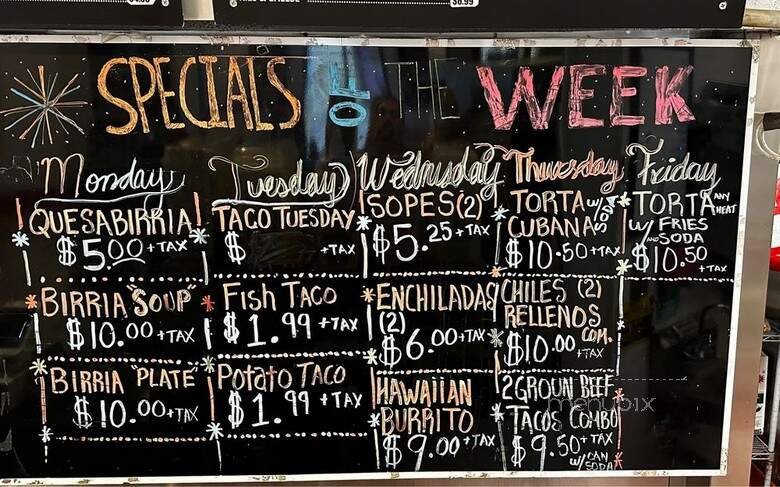 $8.99
SPECIALS OF THE WEEK
Monday
QUESABIRRIA
$5.00 +TAX
BIRRIA "SOUP"
$10.00 +TAX
BIRRIA "PLATE"
$10.00 +TAX
Tuesday
TACO TUESDAY
$ +TAX
Fish Taco
$1.99 +TAX
Potato Taco
$1.99 +TAX
Wednesday
SOPES (2)
$5.25 +TAX
ENCHILADAS
(2)
$6.00 +TAX
HAWAIIAN
BURRITO
$9.00 +TAX
Thursday
TORTA W/ SODA
CUBANA
$10.50 +TAX
CHILES (2)
RELLENOS
$10.00 COM. +TAX
2 GROUN BEEF
TACOS COMBO
$9.50 +TAX
W/ CAN SODA
Friday
TORTA ANY MEAT
W/ FRIES
AND SODA
$10.50
+TAX
menupix